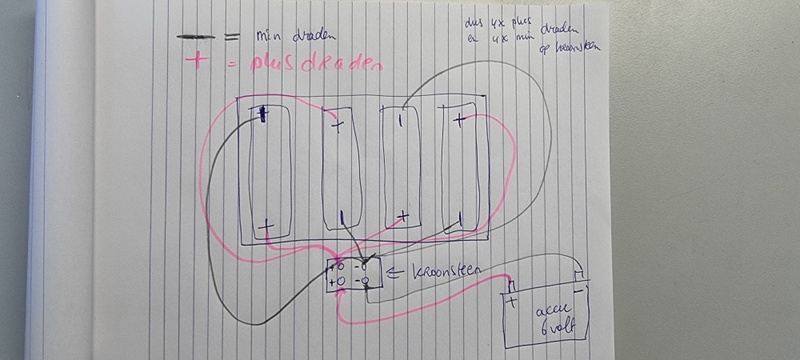 — = min draden
+ = plusdraden
dus 4x plus
en 4x min draden
op kroonsteen
+ + | +
+ | + |
+ -
+ -
← kroonsteen
+ -
accu
6 volt